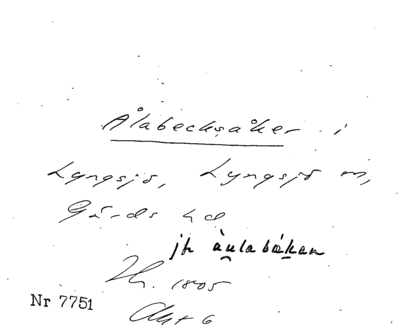 Ålabecksåker i
Lyngsjö, Lyngsjö sn,
Gärds hd
jfr àulabäken
Sk. 1805
Nr 7751
Akt 6